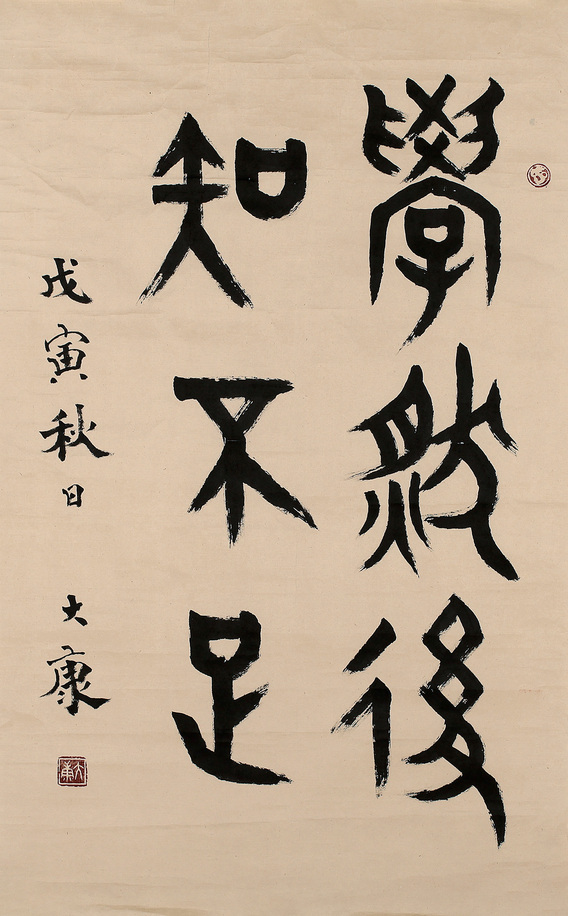 學然後
知不足
戊寅秋日 大康
大康